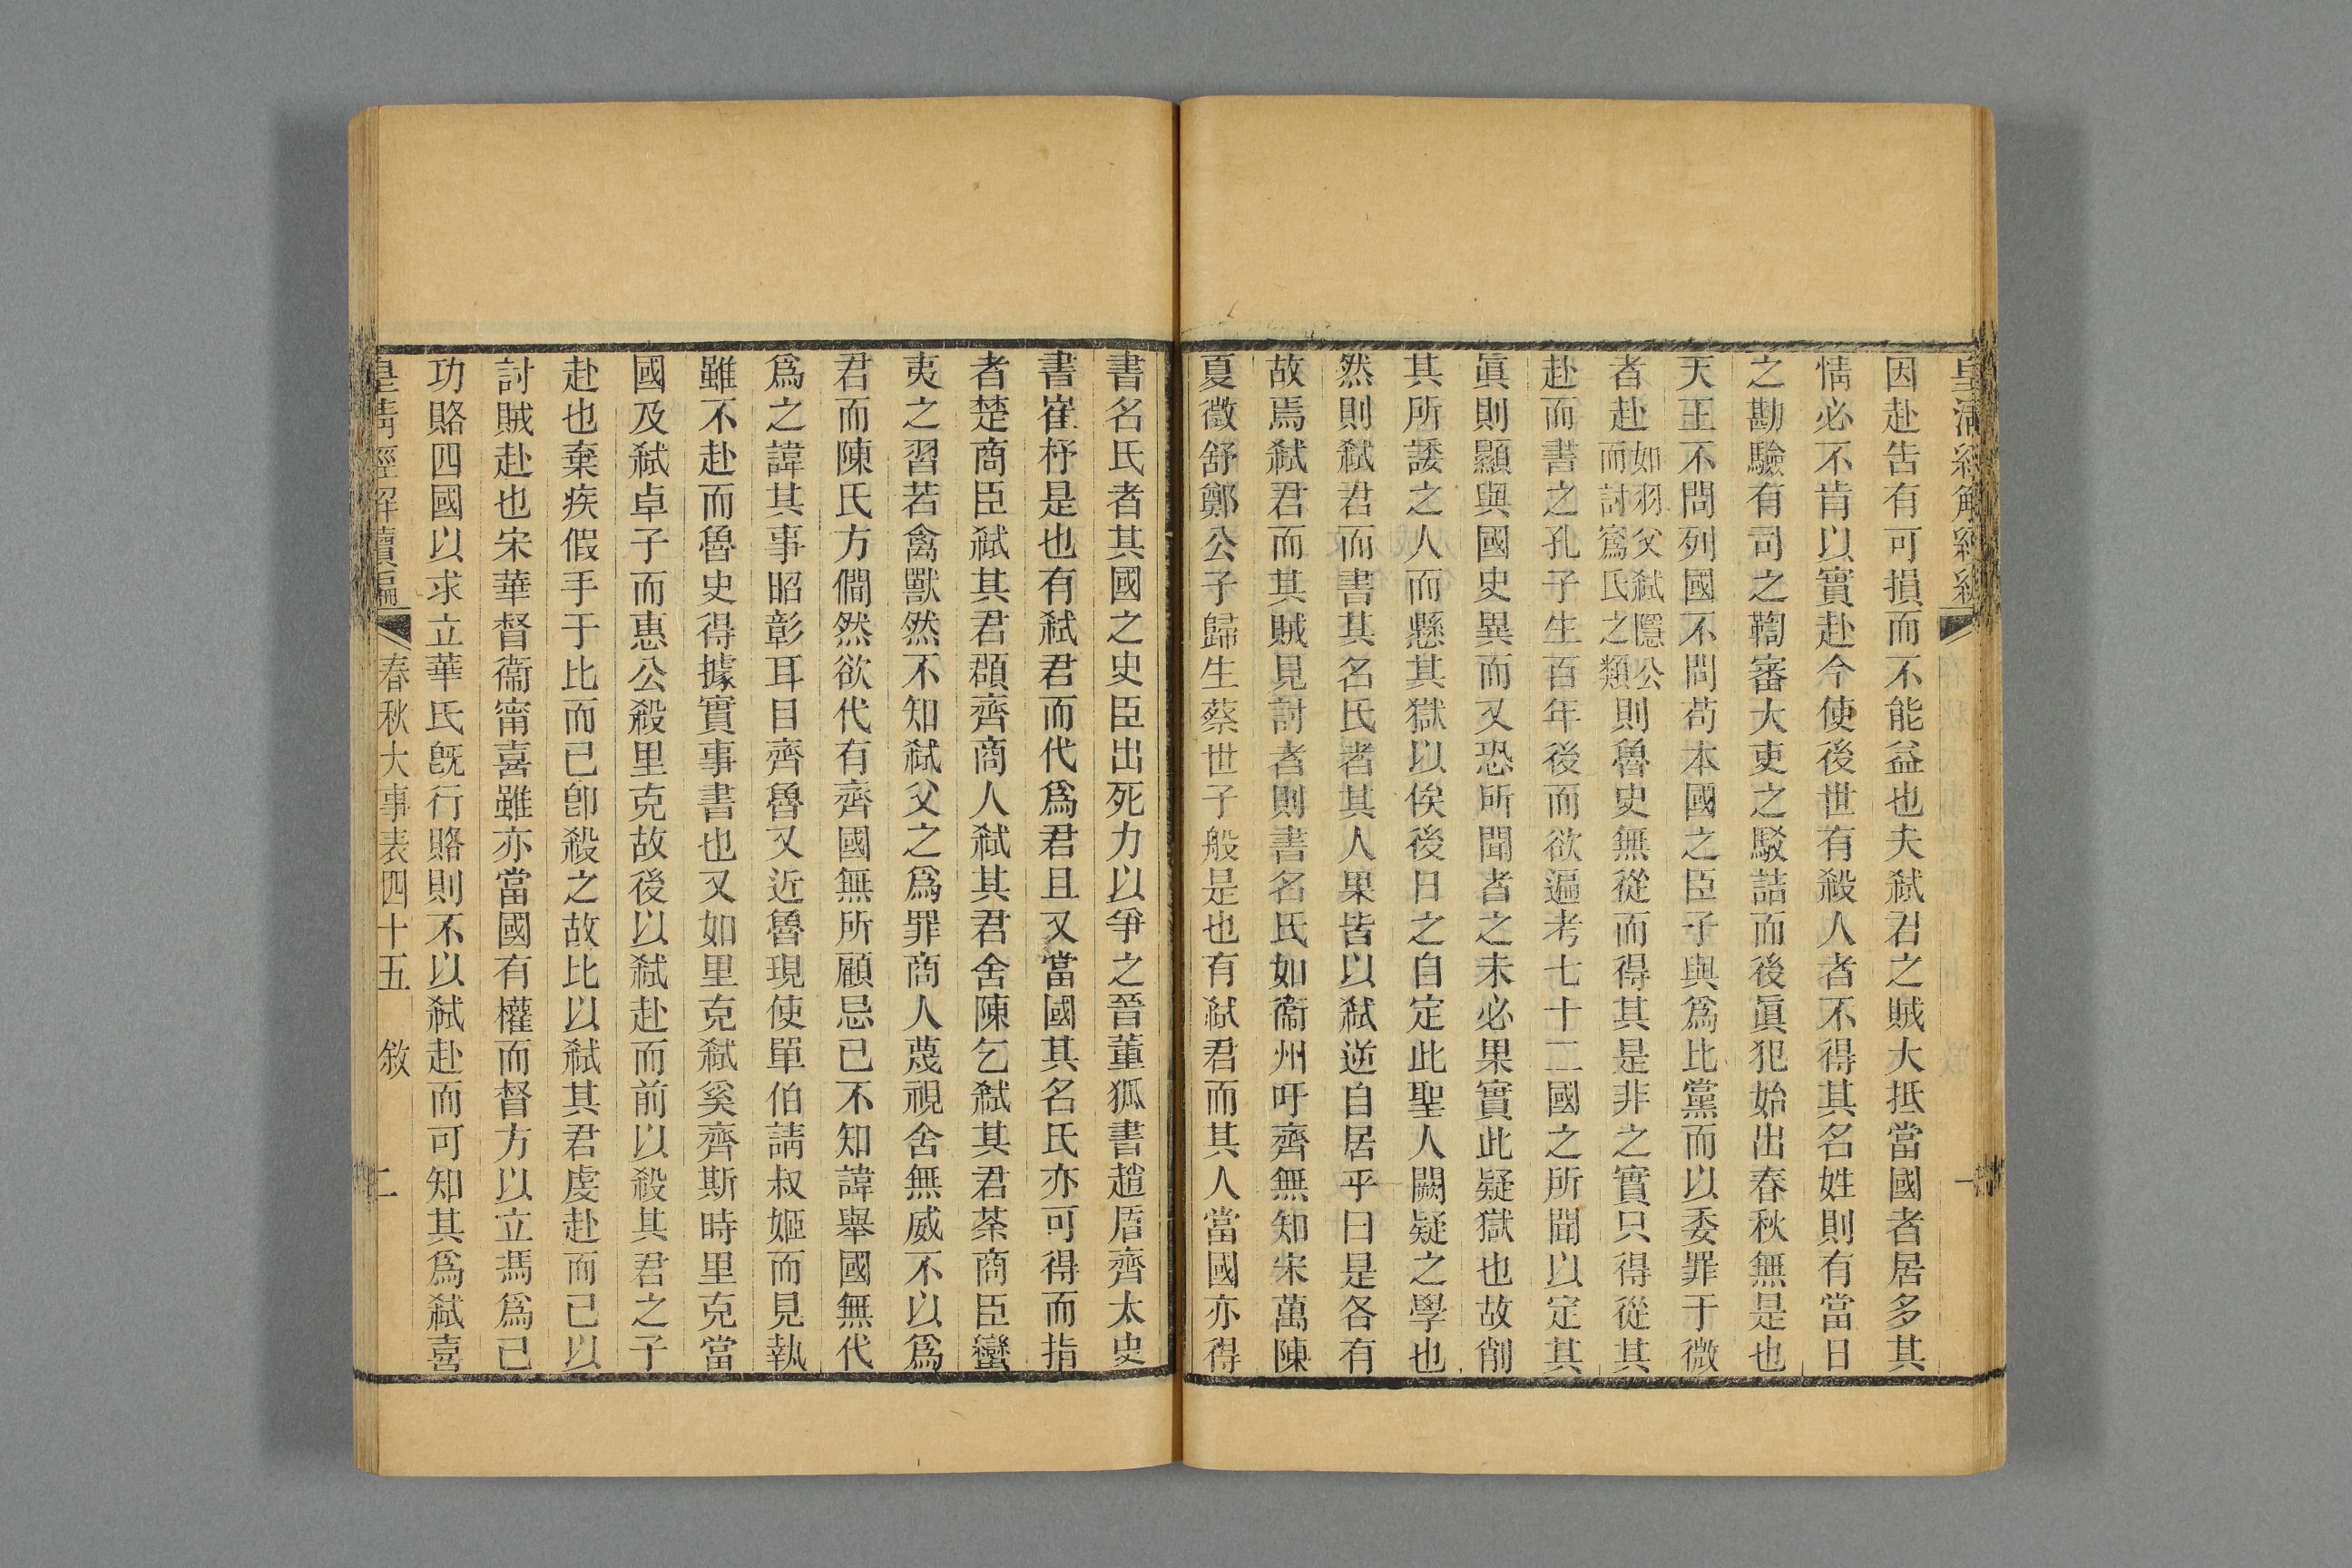 因赴告有可損而不能益也夫弑君之賊大抵當國者居多其
情必不肯以實赴今使後世有殺人者不得其名姓則有當日
之勘驗有司之鞫審大吏之駁詰而後眞犯始出春秋無是也
天王不問列國不問苟本國之臣子與爲比黨而以委罪于微
者赴如羽父弑隱公而討寪氏之類則魯史無從而得其是非之實只得從其
赴而書之孔子生百年後而欲遍考七十二國之所聞以定其
眞則顯與國史異而又恐所聞者之未必果實此疑獄也故削
其所諉之人而懸其獄以俟後日之自定此聖人闕疑之學也
然則弑君而書其名氏者其人果皆以弑逆自居乎曰是各有
故焉弑君而其賊見討者則書名氏如衞州吁齊無知宋萬陳
夏徵舒鄭公子歸生蔡世子般是也有弑君而其人當國亦得
書名氏者其國之史臣出死力以爭之晉董狐書趙盾齊太史
書崔杼是也有弑君而代爲君且又當國其名氏亦可得而指
者楚商臣弑其君頵齊商人弑其君舍陳乞弑其君荼商臣蠻
夷之習若禽獸然不知弑父之爲罪商人蔑視舍無威不以爲
君而陳氏方僩然欲代有齊國無所顧忌已不知諱舉國無代
爲之諱其事昭彰耳目齊魯又近魯現使單伯請叔姬而見執
雖不赴而魯史得據實事書也又如里克弑奚齊斯時里克當
國及弑卓子而惠公殺里克故後以弑赴而前以殺其君之子
赴也棄疾假手于比而已卽殺之故比以弑其君虔赴而已以
討賊赴也宋華督衞甯喜雖亦當國有權而督方以立馮爲己
功賂四國以求立華氏旣行賂則不以弑赴而可知其爲弑喜
皇清經解續編 春秋大事表四十五 敘 二